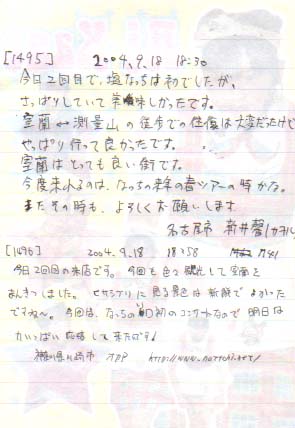 [1495] 2004.9.18 18:30
今日2回目で、塩なっちは初でしたが、
さっぱりしていて美味しかったです。
室蘭↔測量山の徒歩での往復は大変だったけど
やっぱり行って良かったです。
室蘭はとっても良い街です。
今度来れるのは、なっちの来年の春ツアーの時かな。
またその時も、よろしくお願いします
名古屋市 新井
[1496] 2004.9.18 18:58
今日2回目の来店です。今回も色々観光して室蘭を
まんきつしました。ヒサシブリに見る景色は新鮮でよかった
ですね〜。今回は、なっちの初のコンサートなので明日は
力いっぱい応援して来たいです!
神奈川県川崎市 http://www.nattchi.net/